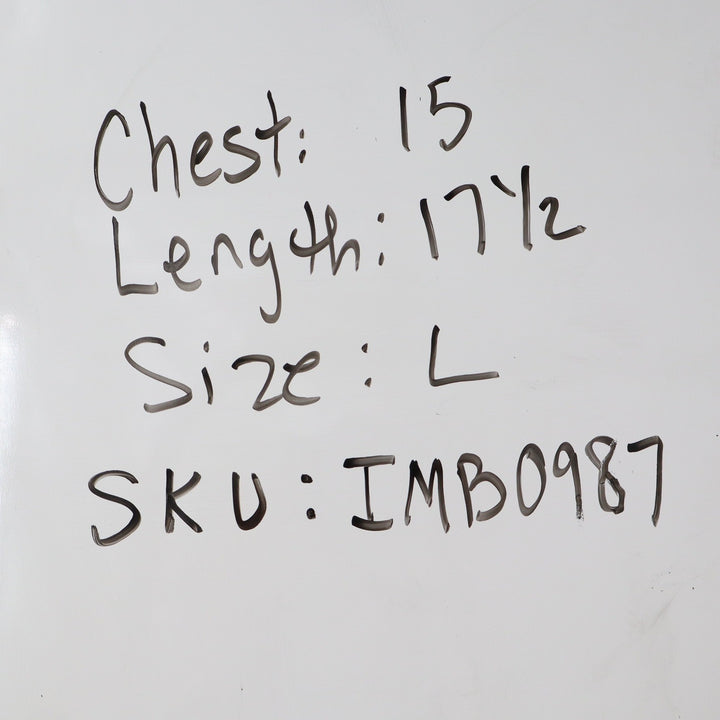 Chest: 15
Length: 17 1/2
Size: L
SKU: IMB0987